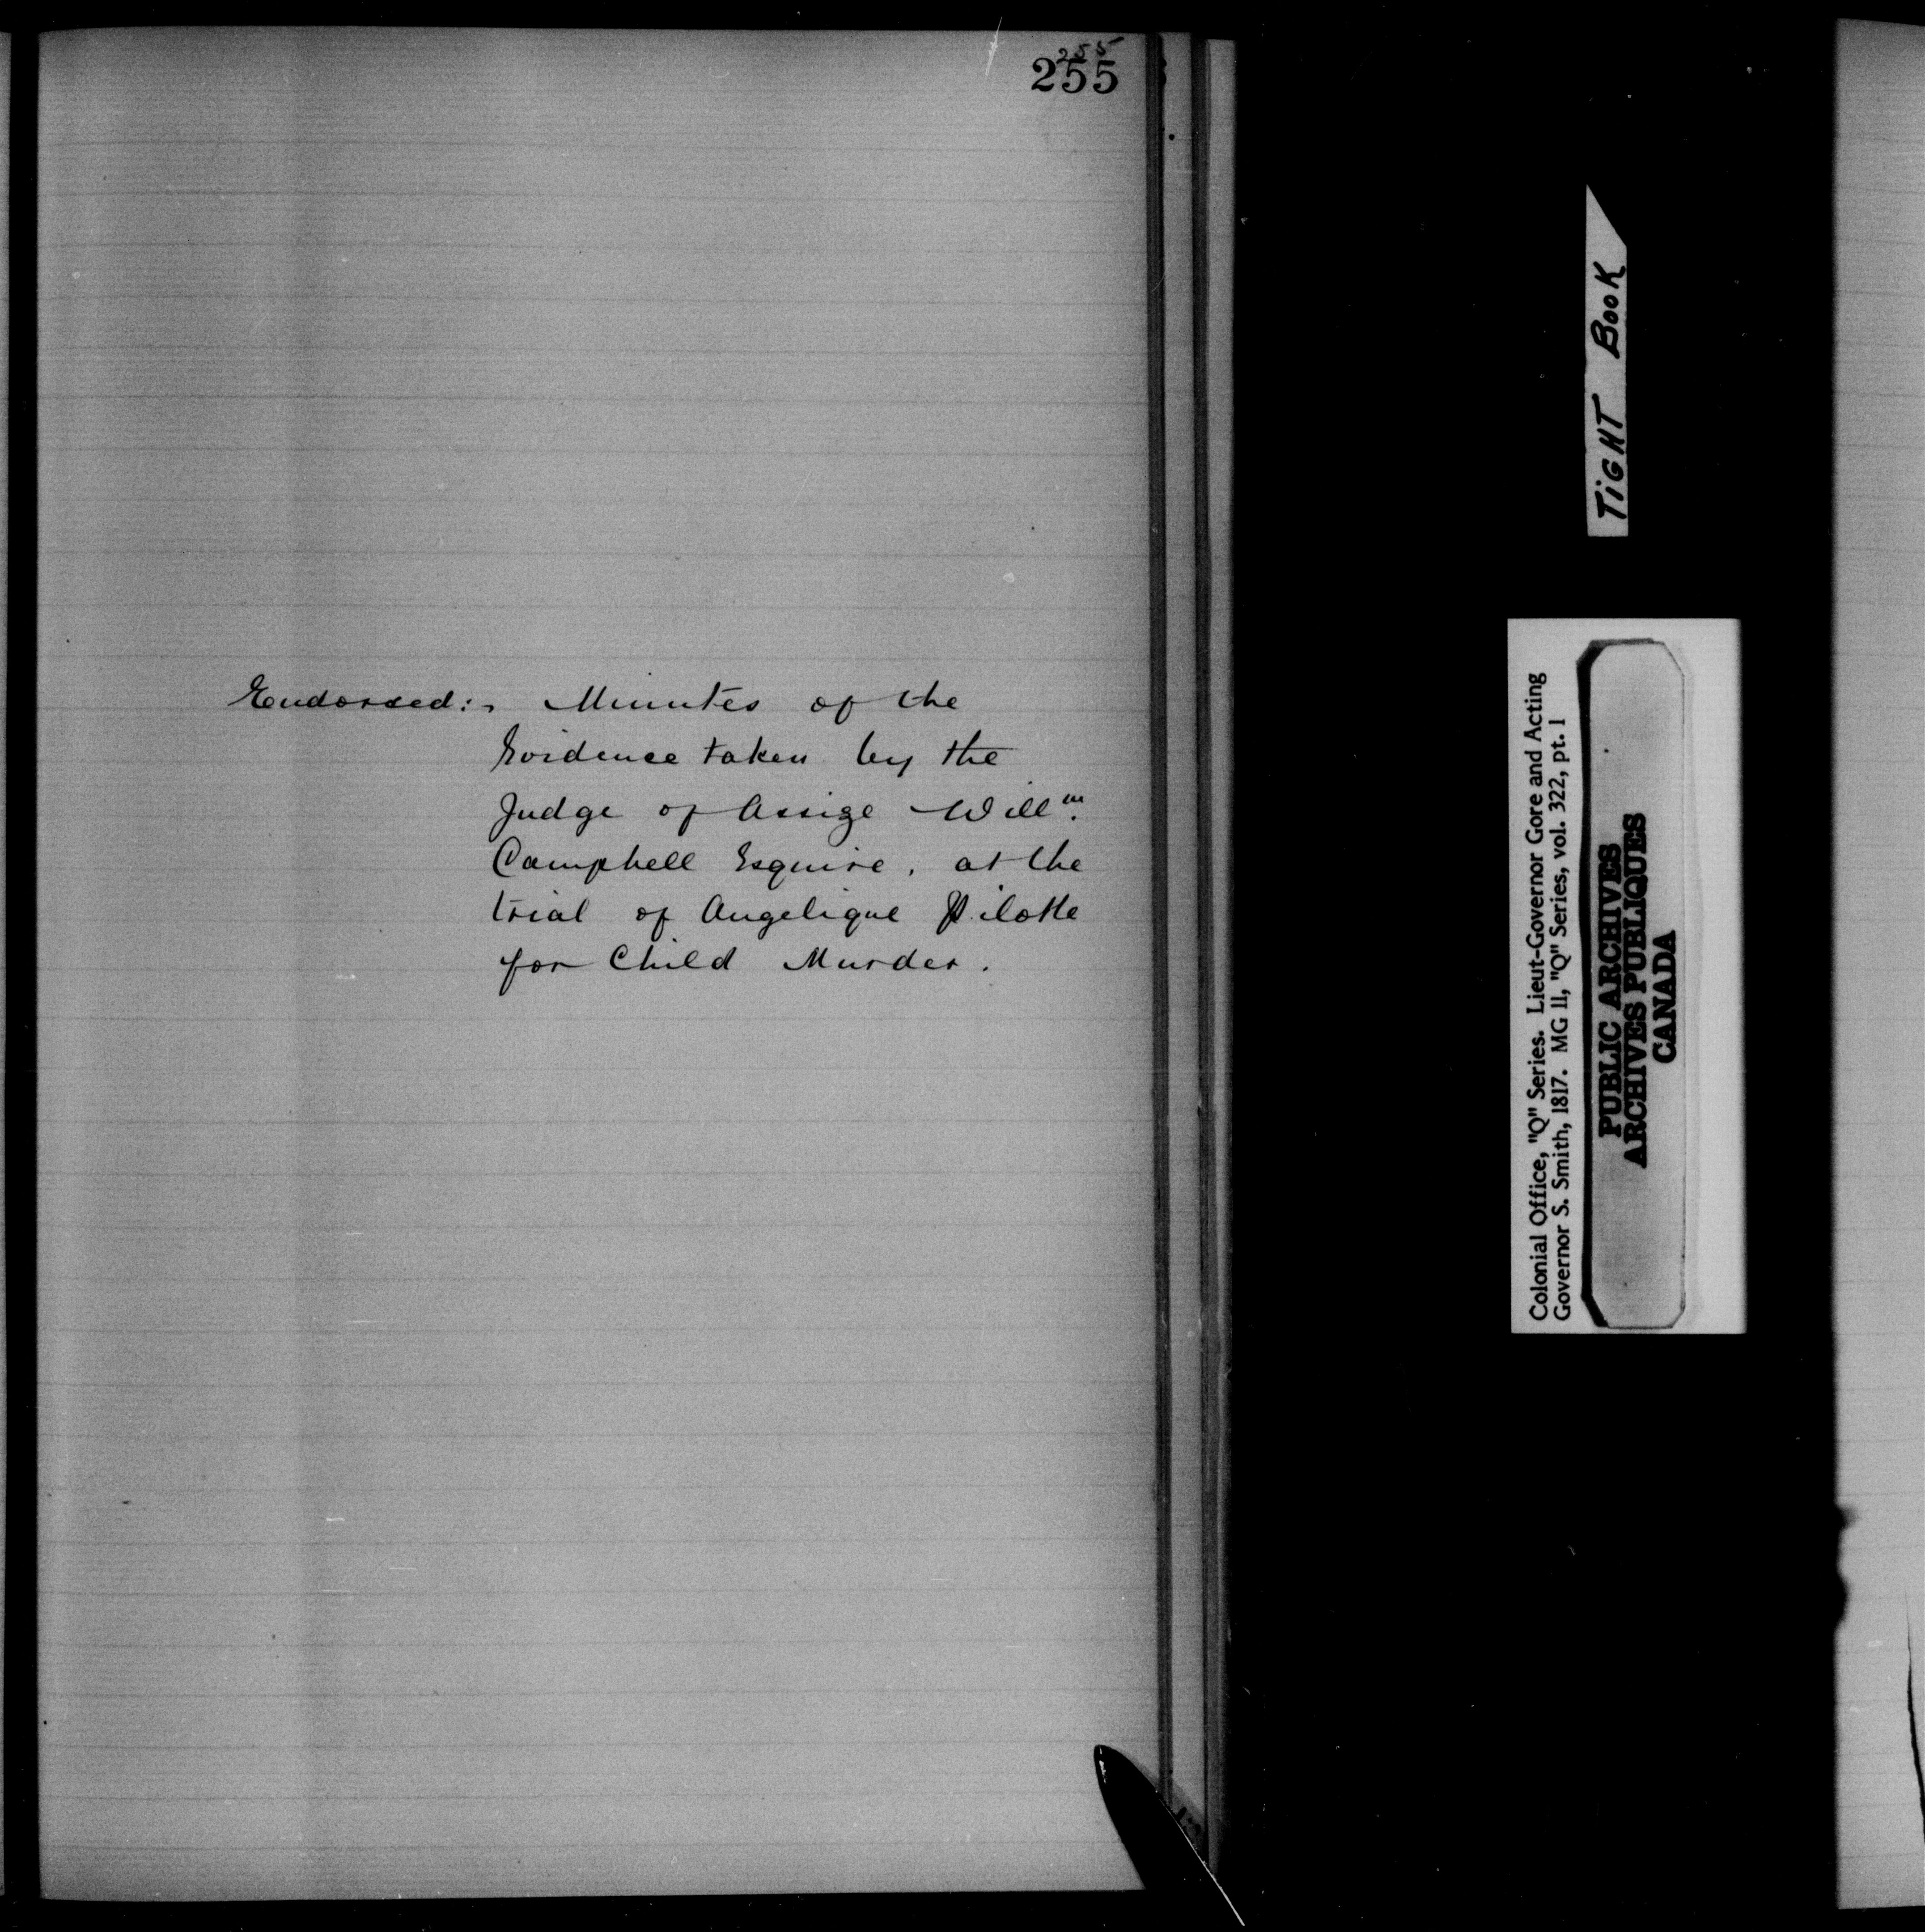 255
255
Endorsed:- Minutes of the
Evidence taken by the
Judge of Assize Will<sup>m</sup>.
Campbell Esquire, at the
trial of Angelique Pilotte
for Child Murder.
TiGHT BooK
Colonial Office, "Q" Series. Lieut-Governor Gore and Acting
Governor S. Smith, 1817. MG 11, "Q" Series, vol. 322, pt. 1
PUBLIC ARCHIVES
ARCHIVES PUBLIQUES
CANADA